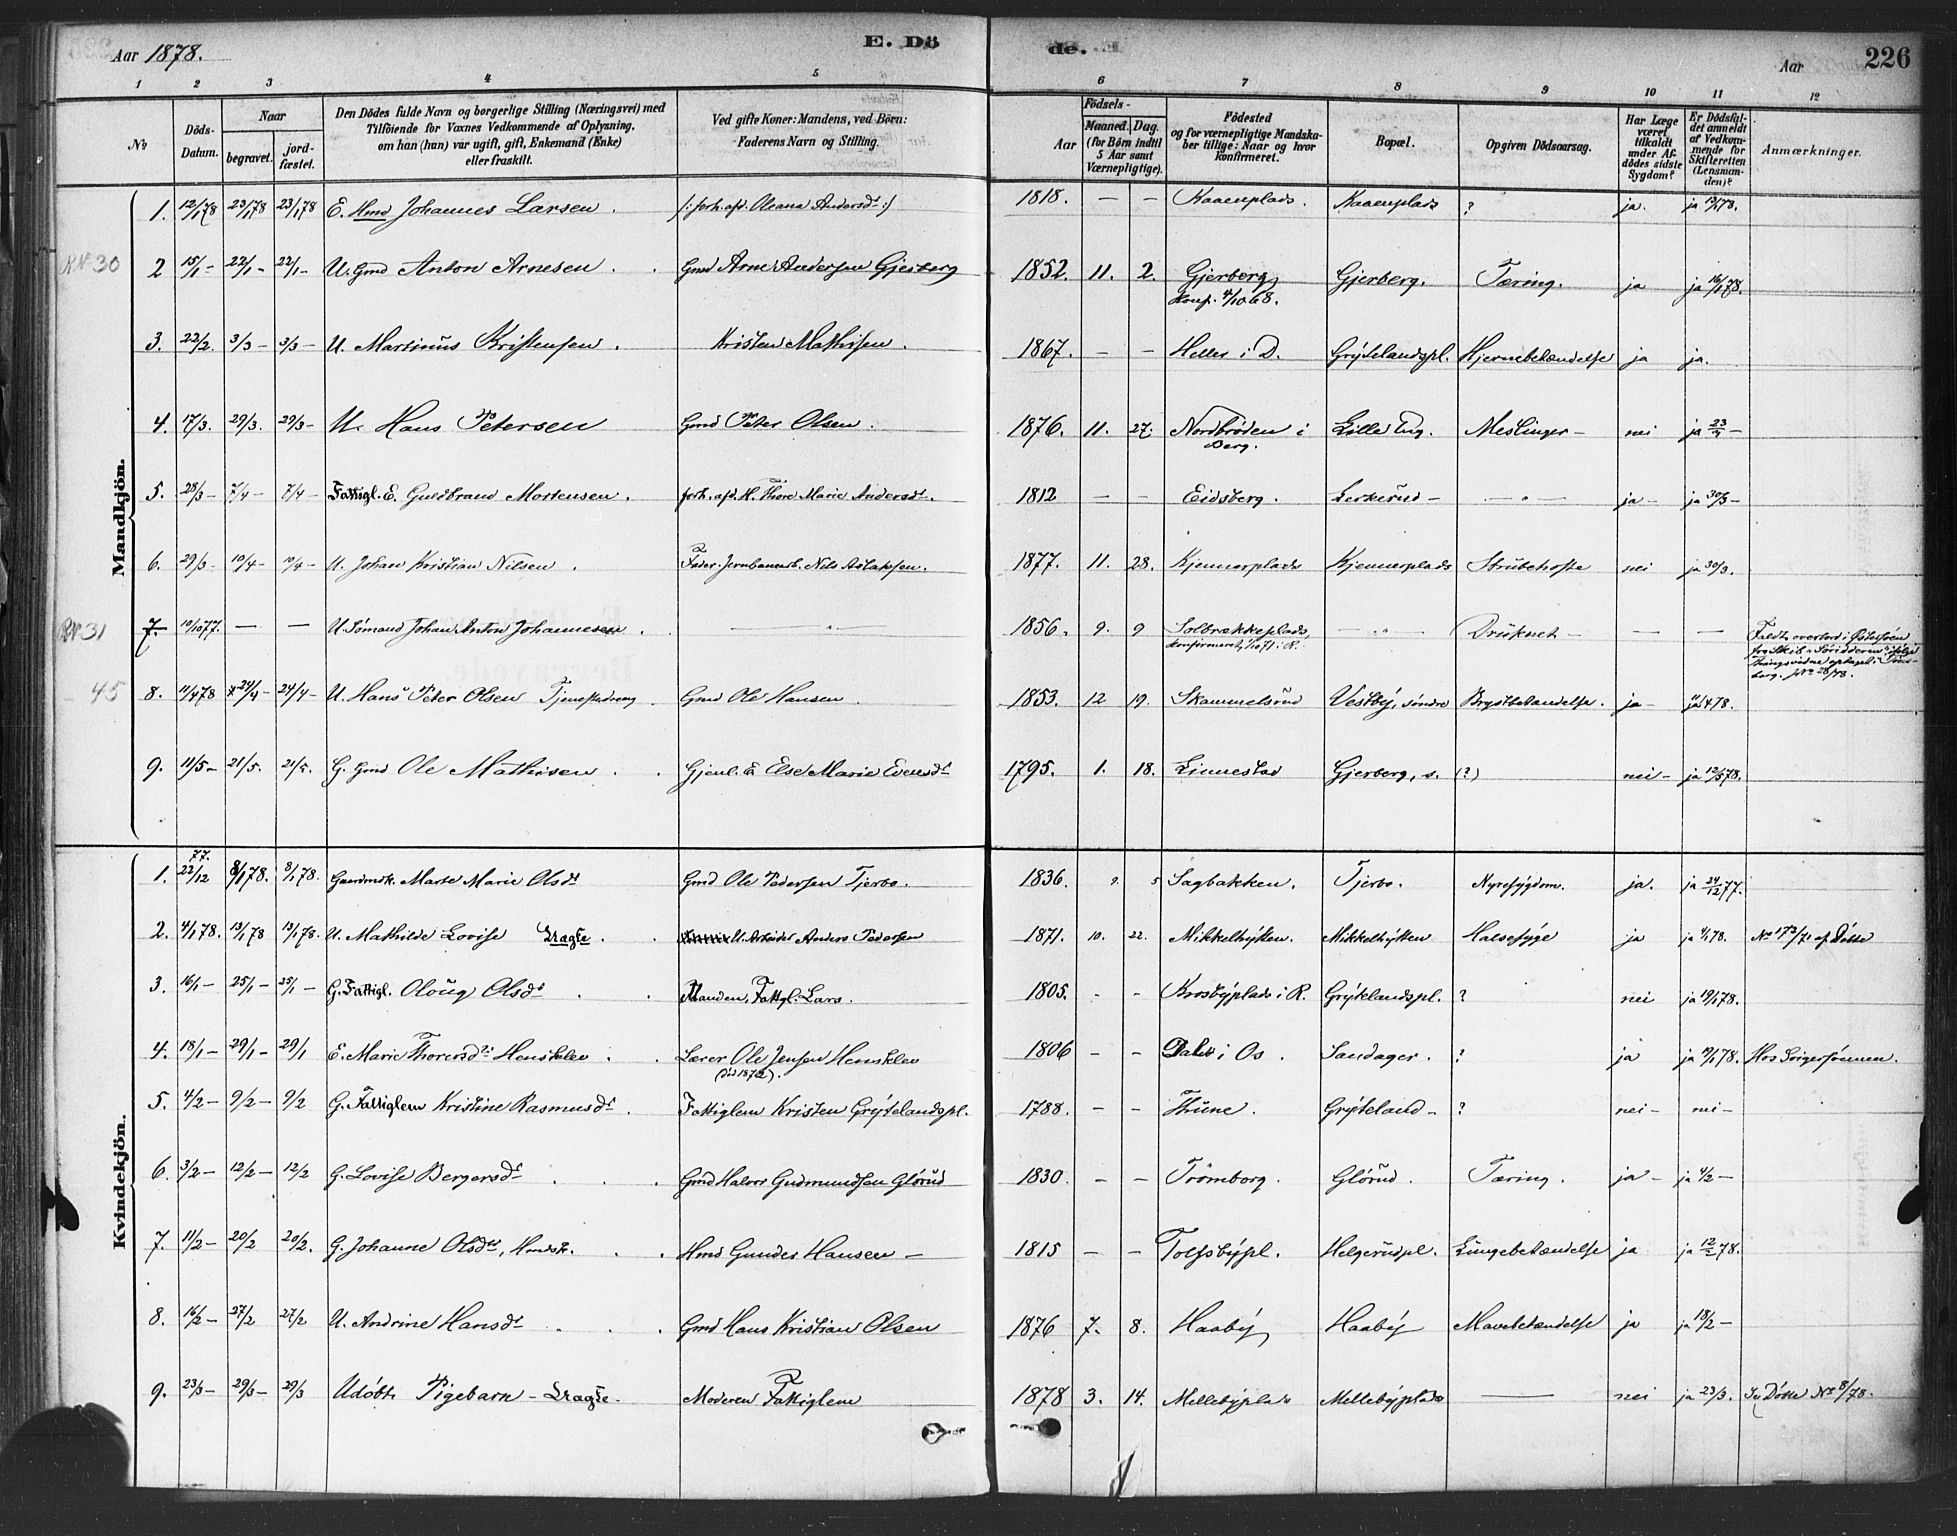 Aar 1878. E. Dö de. Aar 226
1 2 3 4 5 6 7 8 9 10 11 12
No Döds-Datum. Naar begravet. jordfæstet. Den Dödes fulde Navn og borgerlige Stilling (Næringsvei) med Tilföiende for Voxnes Vedkommende af Oplysning, om han (han) var ugift, gift, Enkemand (Enke) eller fraskilt. Ved gifte Koner: Mandens, ved Börn: Faderens Navn og Stilling. Aar Födsels- Maaned. Dag. (for Börn indtil 5 Aar samt Værnepligtige). Födested og for værnepligtige Mandskaber tillige: Naar og hvor konfirmeret. Bopæl. Opgiven Dödsaarsag. Har Læge været tilkaldt under Afdödes sidste Sygdom? Er Dödsfaldet anmeldt af Vedkommende for Skifteretten (Lensmanden)? Anmærkninger.
Mandkjön.
1. 12/1 78 23/1 78 23/1 78 E. Hmd Johannes Larsen. /: forh. afd. Oleana Andersdt :/ 1818. — — Kaaenplads. Kaaenplads ? ja. ja 13/1 78.
2 15/1 – 22/1 – 22/1 – U. Gmd Anton Arnesen. Gmd Arne Andersen Gjerberg 1852. 11. 2. Gjerberg Gjerberg. Tæring. ja ja 16/1 78.
Konf. 4/10 68.
3. 22/2. 3/3 – 3/3 – U. Martinus Kristensen. Kristen Mathisen. 1867. — — Heller i D. Grýtelandspl. Hjernebetændelse ja ja.
4. 17/3. 29/3. 29/3 – U. Hans Petersen Gmd Peter Olsen. 1876. 11. 27. Nordbrøden i Lille Eng. Meslinger – nei ja 23/3 –
Berg.
5. 28/3 – 7/4 – 7/4 – Fattigl. E. Guldbrand Mortensen. forh. afd. M. Thore Marie Andersdt. 1812 — — Eidsberg. Lerkerud – — „ — ja – ja 30/3 –
6. 29/3 – 10/4 – 10/4 – U. Johan Kristian Nilsen. Fader: Jernbanearb. Nils Aslaksen. 1877. 11. 28. Kjennerplads Kjennerplads Strubehoste nei ja 30/3.
RN 30
RN 31
7. 10/10 77. — — U. Sømand Johan Anton Johannesen. — „ — 1856. 9. 9 Solbrækkeplads, — „ — Druknet – — — Faldt overbord i Østersøen
konfirmeret 1/10 71 i R. fra Skib „Søridderen“ ifølge
Thingsvidne optaget i Tønsberg. pNo 28/78.
– 45
8. 11/4 78 24/4 – 24/4 – U. Hans Peter Olsen Tjenestedreng Gmd Ole Hansen. 1853. 12 19. Skammelsrud Vestbý, søndre Brystbetændelse. ja – ja 11/4 78.
9. 11/5 – 21/5. 21/5. G. Gmd Ole Mathisen. Gjenl. E. Else Marie Evensdt 1795. 1. 18. Linnestad Gjerberg, s. (?) nei – ja 12/5 78.
Kvindekjön.
1. 22/12 77. 8/1 78. 8/1 78. Gaardmdk. Marte Marie Olsdt Gmd Ole Pedersen Tjerbo. 1836. 9. 5 Sagbakken. Tjerbo. Nyresýgdom. ja. ja 24/12 77.
2. 4/1 78. 13/1 78 13/1 78. U. Mathilde Lovise Uægte. U. Arbeider Anders Pedersen 1871. 10. 22. Mikkelhýtten. Mikkelhýtten Halsesýge ja ja 4/1 78. No 172/71 af Døbte
3. 16/1 – 25/1 – 25/1 – G. Fattigl. Oloug Olsdt. Manden, Fattgl. Lars. 1805. – – Krosbýplads i R. Grýtelandspl. ? nei ja 19/1 78.
4. 18/1 – 29/1 – 29/1 E. Marie Thorersdt Henskler. Lærer Ole Jensen Henskler 1806 – – Daler i Os. Sandager. ? ja ja 19/1 78. Hos Svigersønnen.
(død 1872).
5. 4/2 – 9/2 – 9/2 G. Fattiglem Kristine Rasmusdt. Fattiglem Kristen Grýtelandspl. 1788. – – Thune. Grýteland – ? nei – nei –
6. 3/2 – 12/2 – 12/2 G. Lovise Bergersdt. Gmd Halvor Gudmundsen Glørud 1830. – – Trömborg. Glørud. Tæring. ja – ja 4/2 –
7. 11/2 – 20/2 20/2. G. Johanne Olsdtr, Hmdsk. Hmd Gunder Hansen – 1815 – – Tolfsbýpl. Helgerudpl. Lungebetændelse ja ja 12/2 78.
8. 16/2 – 27/2 27/2 U. Andrine Hansdt Gmd Hans Kristian Olsen 1876 7. 8. Haabý Haabý Mavebetændelse ja ja 18/2 –
9. 23/3 – 29/3 – 29/3 Udøbt Pigebarn – Uægte. Moderen Fattiglem 1878 3. 14. Mellebýplads Mellebýplads — nei ja 23/3. Se Døbte No 8/78.